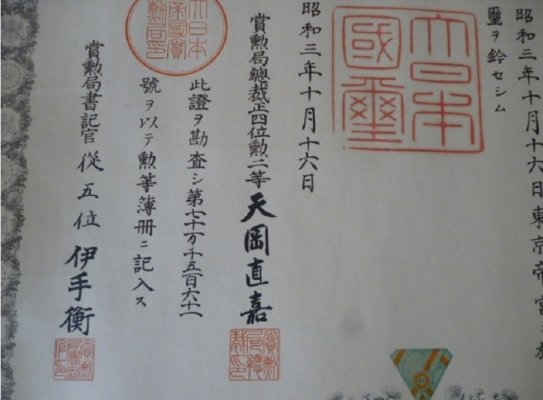 昭和三年十月十六日東京帝宮ニ於
璽ヲ鈐セシム
大日本國璽
昭和三年十月十六日
賞勲局總裁正四位勲二等天岡直嘉
賞勲局總裁印
此證ヲ勘査シ第七十万千五百六十二
號ヲ以テ勲等簿冊ニ記入ス
大日本帝國賞勲局印
賞勲局書記官從五位伊手衡